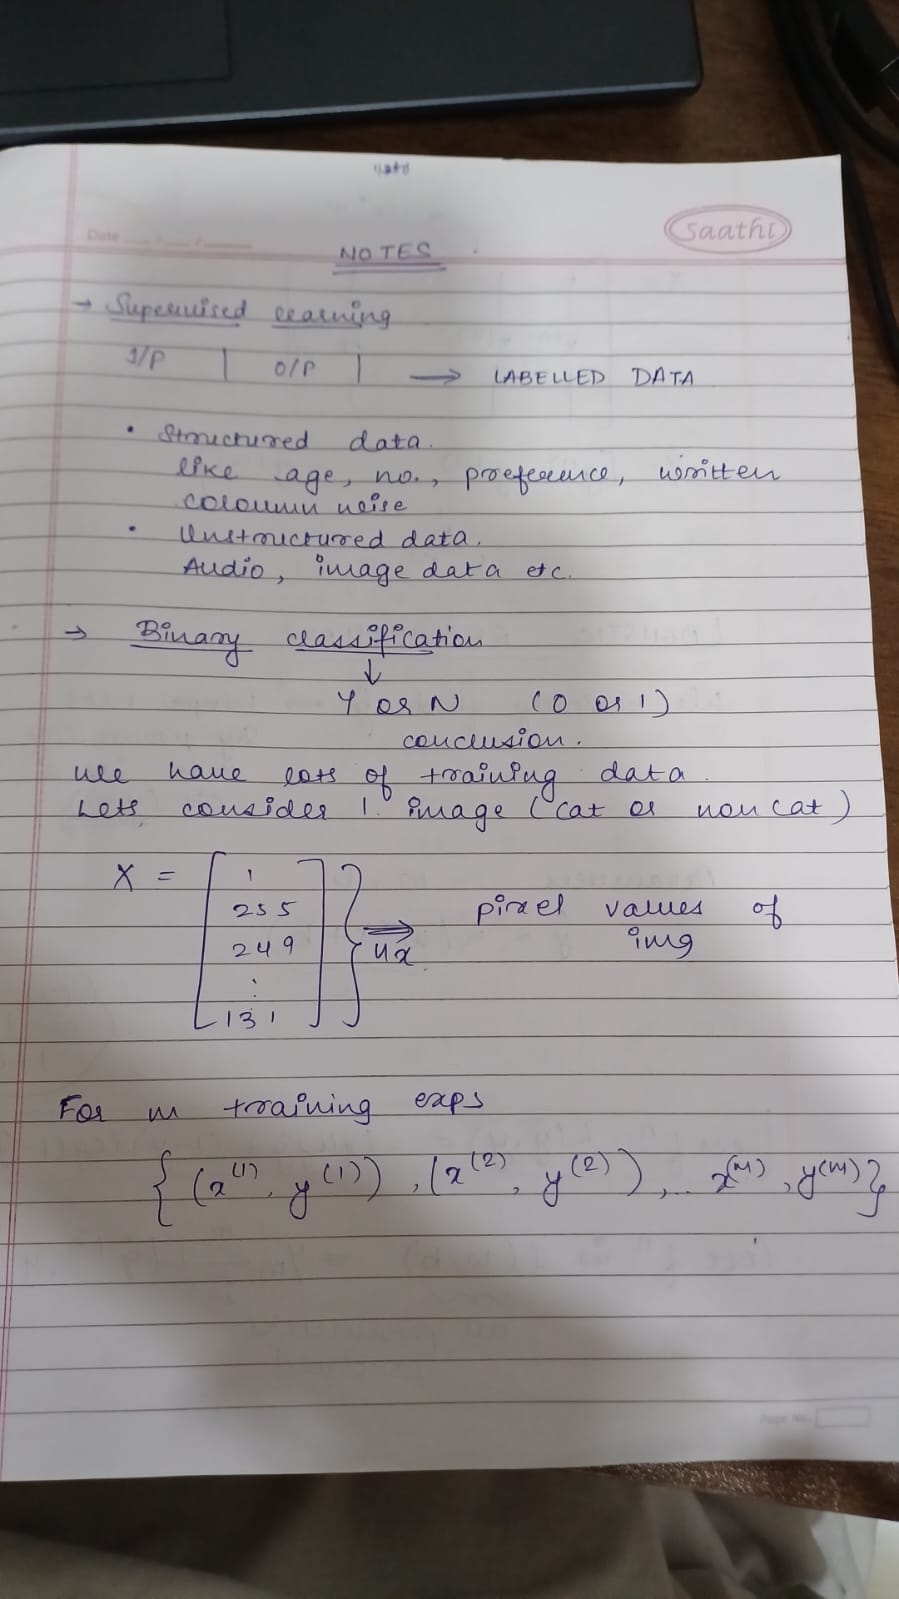 Date
saathi
NOTES
→ Supervised learning
I/P | O/P | → LABELLED DATA
• Structured data.
like age, no., preference, written
coloumn wise
• Unstructured data.
Audio, image data etc.
→ Binary classification
↓
Y or N (0 or 1)
conclusion.
We have lots of training data.
Lets consider 1 image (cat or non cat)
X = [ 1
255
249
⋮
131 ] } ⇒ nx pixel values of
img
For m training exps
{ (x(1), y(1)), (x(2), y(2)), .. x(m), y(m)}
Page No.